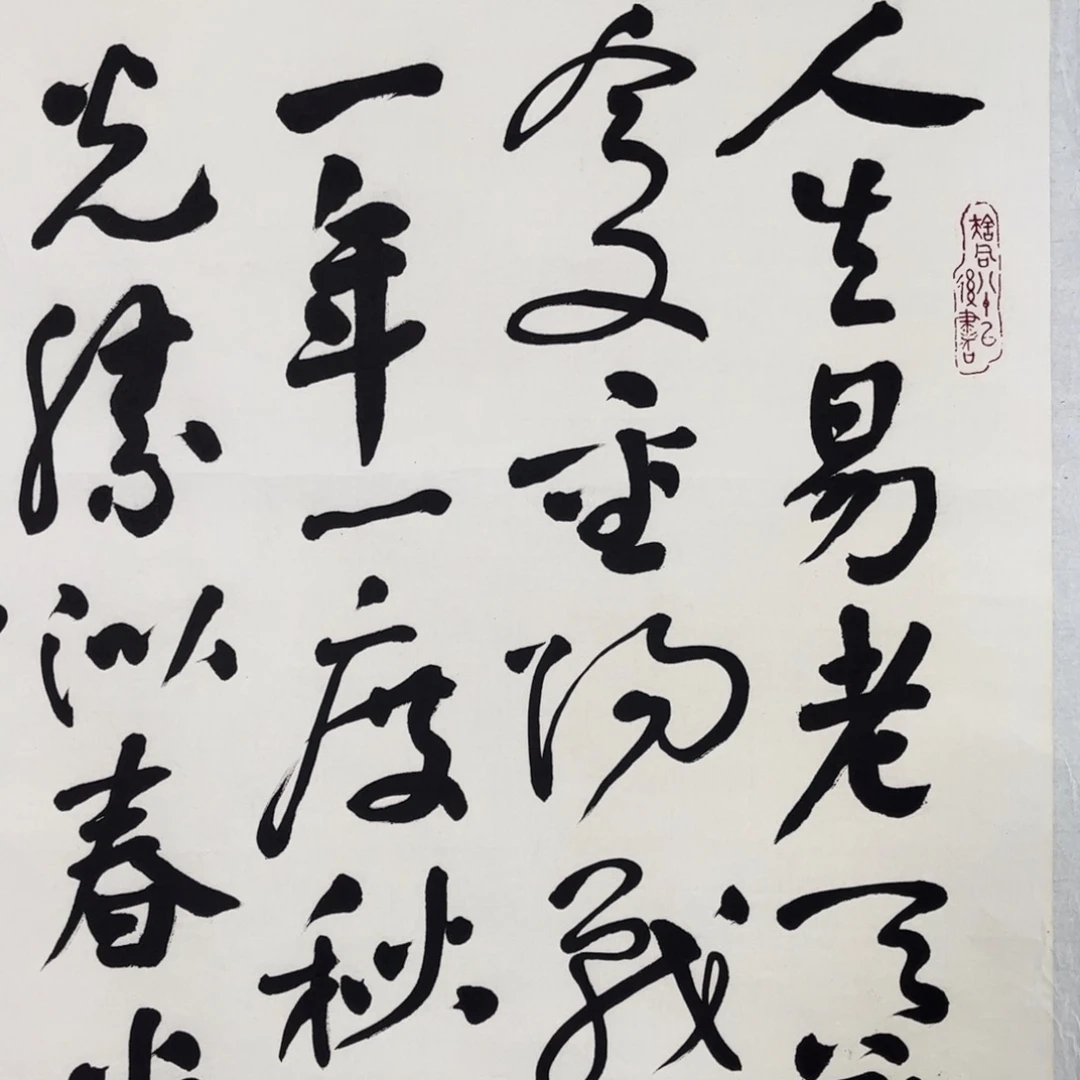 人生易老天
今又重陽戰
一年一度秋
光勝似春